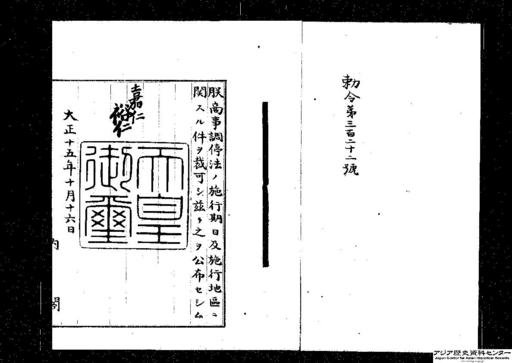 勅令第三百二十二號
朕商事調停法ノ施行期日及施行地區ニ
関スル件ヲ裁可シ茲ニ之ヲ公布セシム
嘉仁
裕仁
天皇
御璽
大正十五年十月十六日
内閣
アジア歴史資料センター
Japan Center for Asian Historical Records